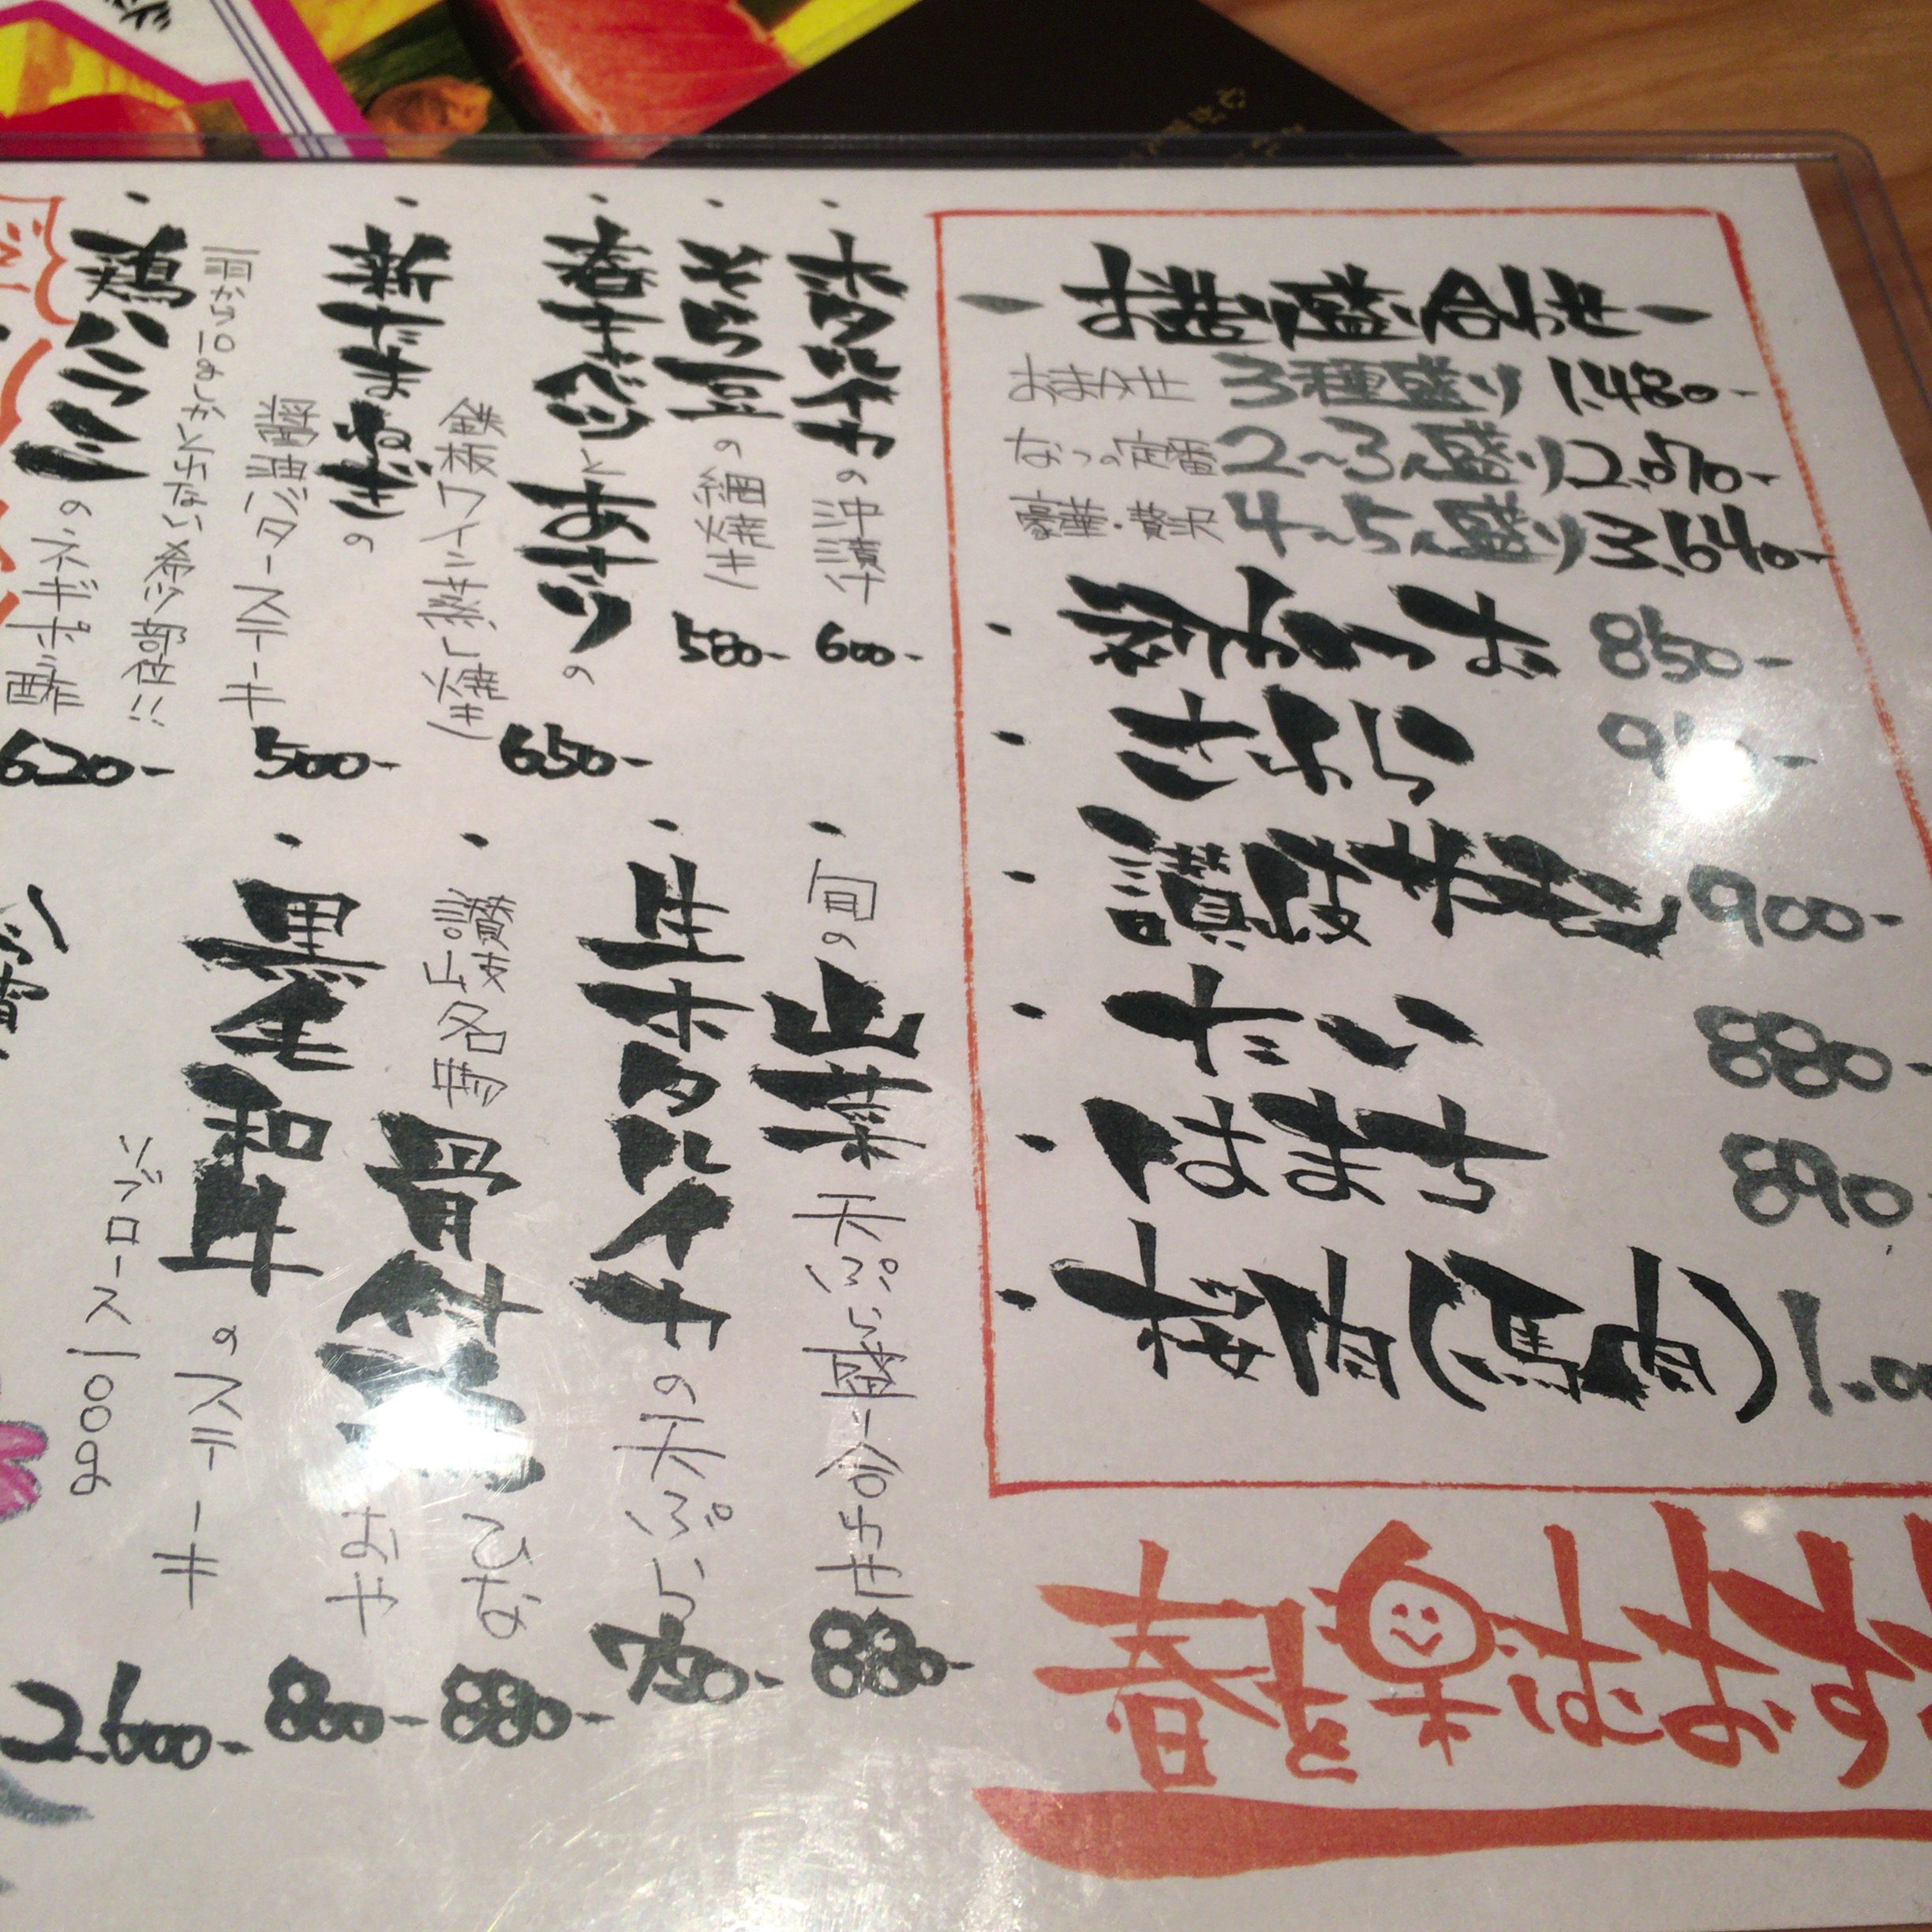 春を楽しむおす
お造盛合わせ
おまかせ 3種盛り 1.480-
なつの定番 2~3人盛り 2.070-
豪華・贅沢 4~5人盛り 3.640-
桜鯛 850-
さわら
讃岐 900-
たい 880-
はまち 890
桜肉(馬肉)
ホタルイカの沖漬け 600-
そら豆の網焼き 500-
春キャベツとあさりの
鉄板ワイン蒸し焼き 650-
新たまねぎの
醤油バターステーキ 500-
一羽から10gしかとれない希少部位!!
鶏ハラミのネギポン酢 620-
旬の山菜天ぷら盛り合わせ 880-
生ホタルイカの天ぷら 750-
讃岐名物 骨付 ひな 880-
おや 800-
黒毛和牛のステーキ
リブロース 100g 2.600-